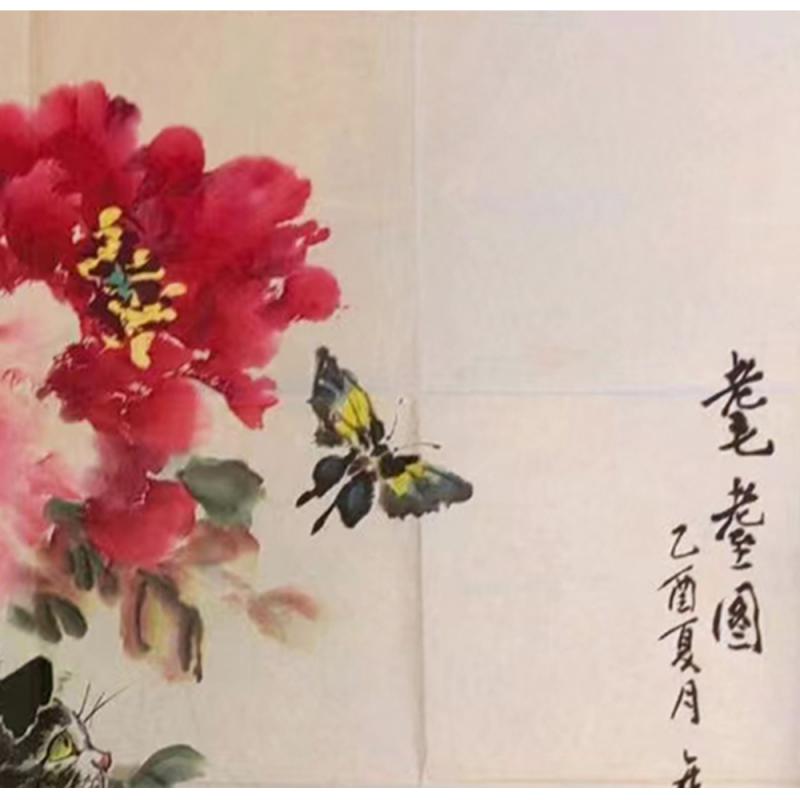 耄耋图
乙酉夏月